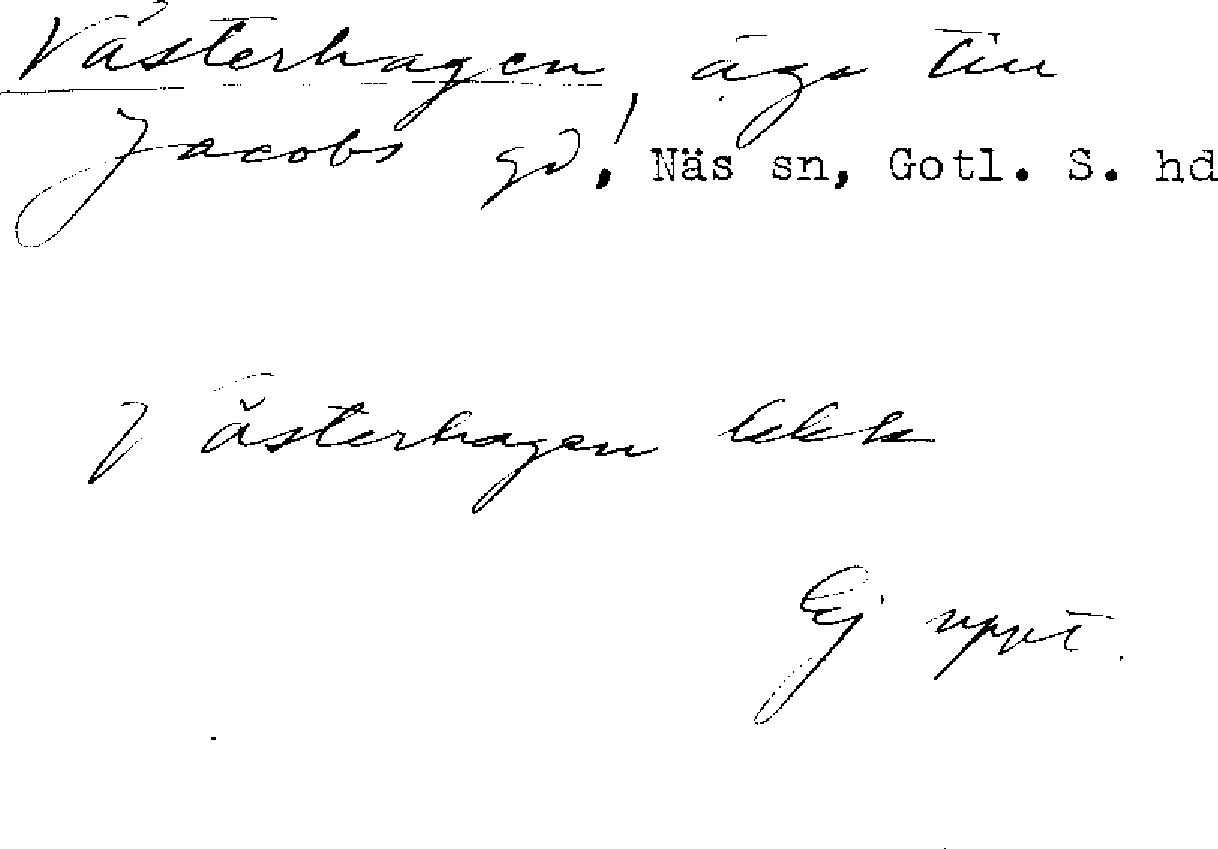 Västerhagen, äga till
Jacobs gd! Näs sn, Gotl. S. hd
Västerhagen
Ej uppt.